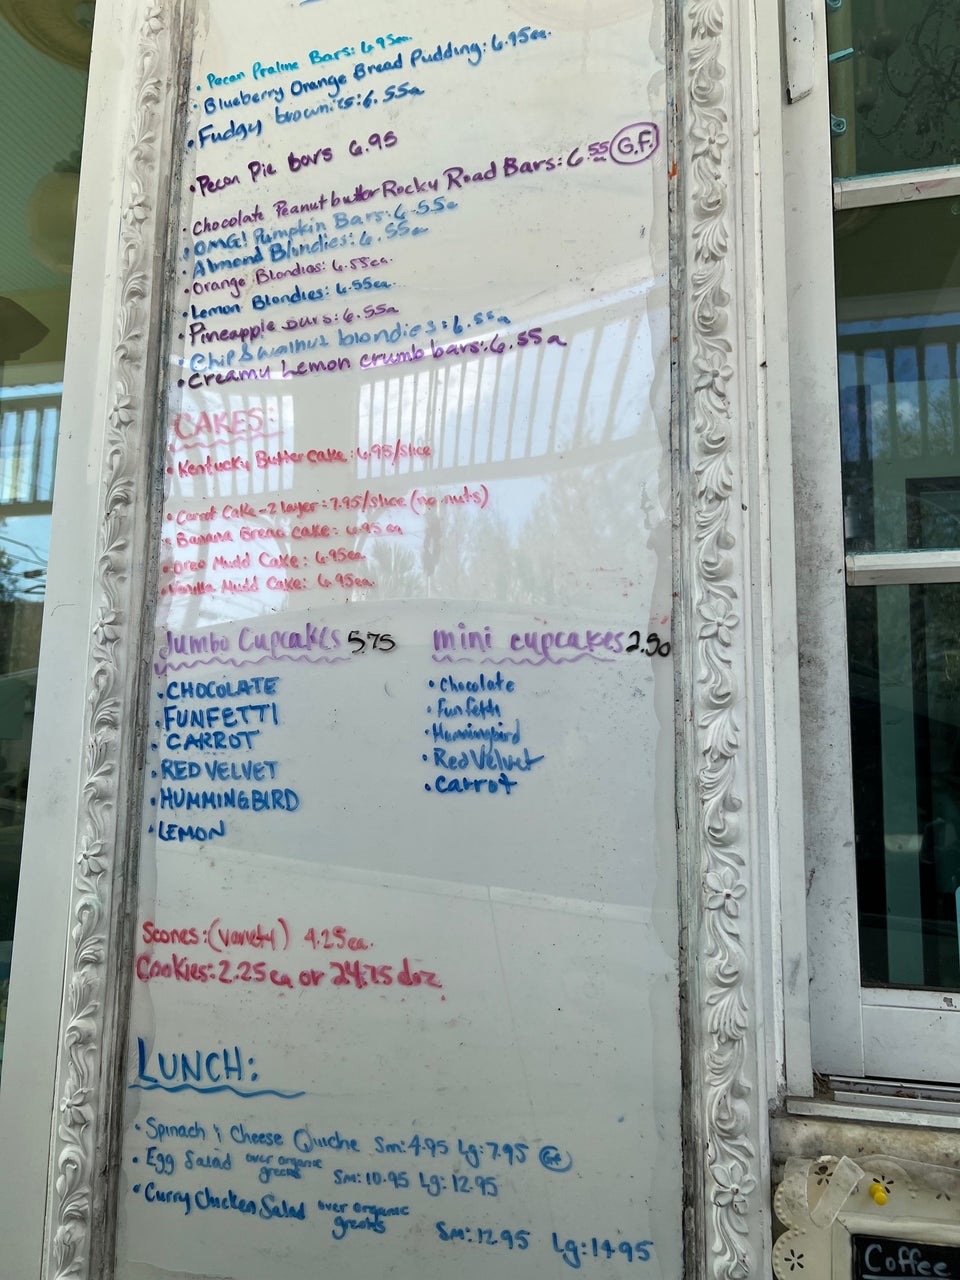 • Pecan Praline Bars: 6.95ea.
• Blueberry Orange Bread Pudding: 6.95ea.
• Fudgy brownies: 6.55ea
• Pecan Pie bars 6.95
• Chocolate Peanut butter Rocky Road Bars: 6.55 G.F.
• OMG! Pumpkin Bars: 6.55ea
• Almond Blondies: 6.55ea
• Orange Blondies: 6.55ea.
• Lemon Blondies: 6.55ea.
• Pineapple bars: 6.55ea
• Chip & walnut blondies: 6.55ea
• Creamy Lemon crumb bars: 6.55ea
CAKES:
• Kentucky Butter cake: 6.95/slice
• Carrot Cake - 2 layer: 7.95/slice (no nuts)
• Banana Bread cake: 6.95 ea
• Oreo Mudd Cake: 6.95ea
• Vanilla Mudd Cake: 6.95ea.
Jumbo Cupcakes 5.75
• CHOCOLATE
• FUNFETTI
• CARROT
• RED VELVET
• HUMMINGBIRD
• LEMON
mini cupcakes 2.50
• Chocolate
• Funfetti
• Hummingbird
• Red Velvet
• Carrot
Scones: (variety) 4.25ea.
Cookies: 2.25ea or 24.75 doz.
LUNCH:
• Spinach & Cheese Quiche Sm: 4.95 Lg: 7.95 GF
• Egg Salad over organic greens Sm: 10.95 Lg: 12.95
• Curry Chicken Salad over organic greens Sm: 12.95 Lg: 14.95
Coffee